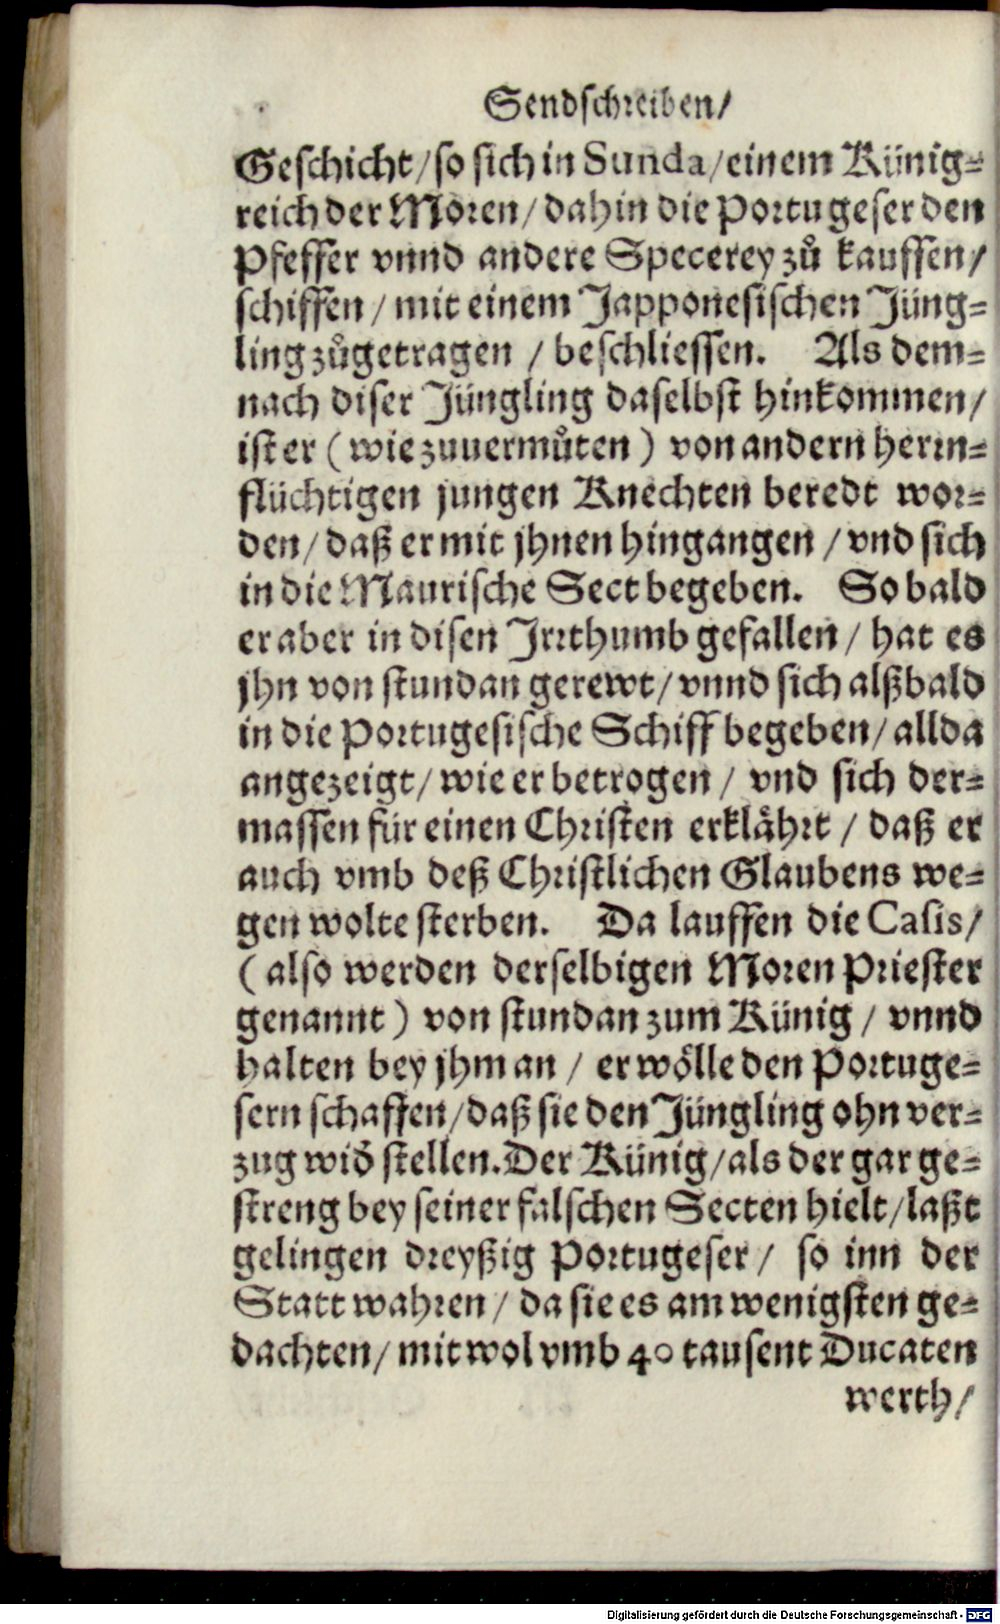 Sendschreiben/
Geschicht/so sich in Sunda/einem Künig=
reich der Moren/dahin die Portugeser den
Pfeffer vnnd andere Specerey zů kauffen/
schiffen/mit einem Japponesischen Jüng=
ling zůgetragen /beschliessen. Als dem=
nach diser Jüngling daselbst hinkommen/
ist er (wie zuuermůten) von andern herin=
flüchtigen jungen Knechten beredt wor=
den/daß er mit jhnen hingangen /vnd sich
in die Maurische Sect begeben. So bald
er aber in disen Irrthumb gefallen/ hat es
jhn von stundan gerewt/vnnd sich alßbald
in die Portugesische Schiff begeben/allda
angezeigt/wie er betrogen/ vnd sich der=
massen für einen Christen erklährt/daß er
auch vmb deß Christlichen Glaubens we=
gen wolte sterben. Da lauffen die Casis/
(also werden derselbigen Moren Priester
genannt) von stundan zum Künig/vnnd
halten bey jhm an/ er wölle den Portuge=
sern schaffen/daß sie den Jüngling ohn ver=
zug wid̄ stellen. Der Künig/als der gar ge=
streng bey seiner falschen Secten hielt/laßt
gelingen dreyßig Portugeser/ so inn der
Statt wahren/da sie es am wenigsten ge=
dachten/mit wol vmb 40 tausent Ducaten
werth/
Digitalisierung gefördert durch die Deutsche Forschungsgemeinschaft - DFG